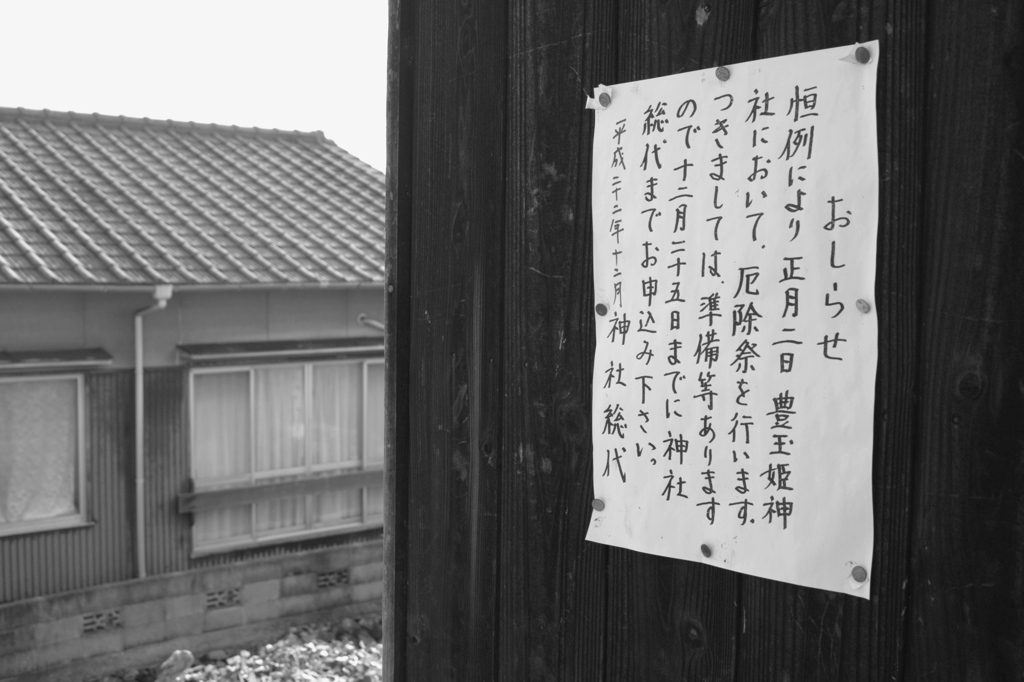 おしらせ
恒例により 正月二日 豊玉姫神
社において、厄除祭を行います。
つきましては、準備等あります
ので十二月二十五日までに神社
総代までお申込み下さいっ
平成二十二年十二月 神社総代